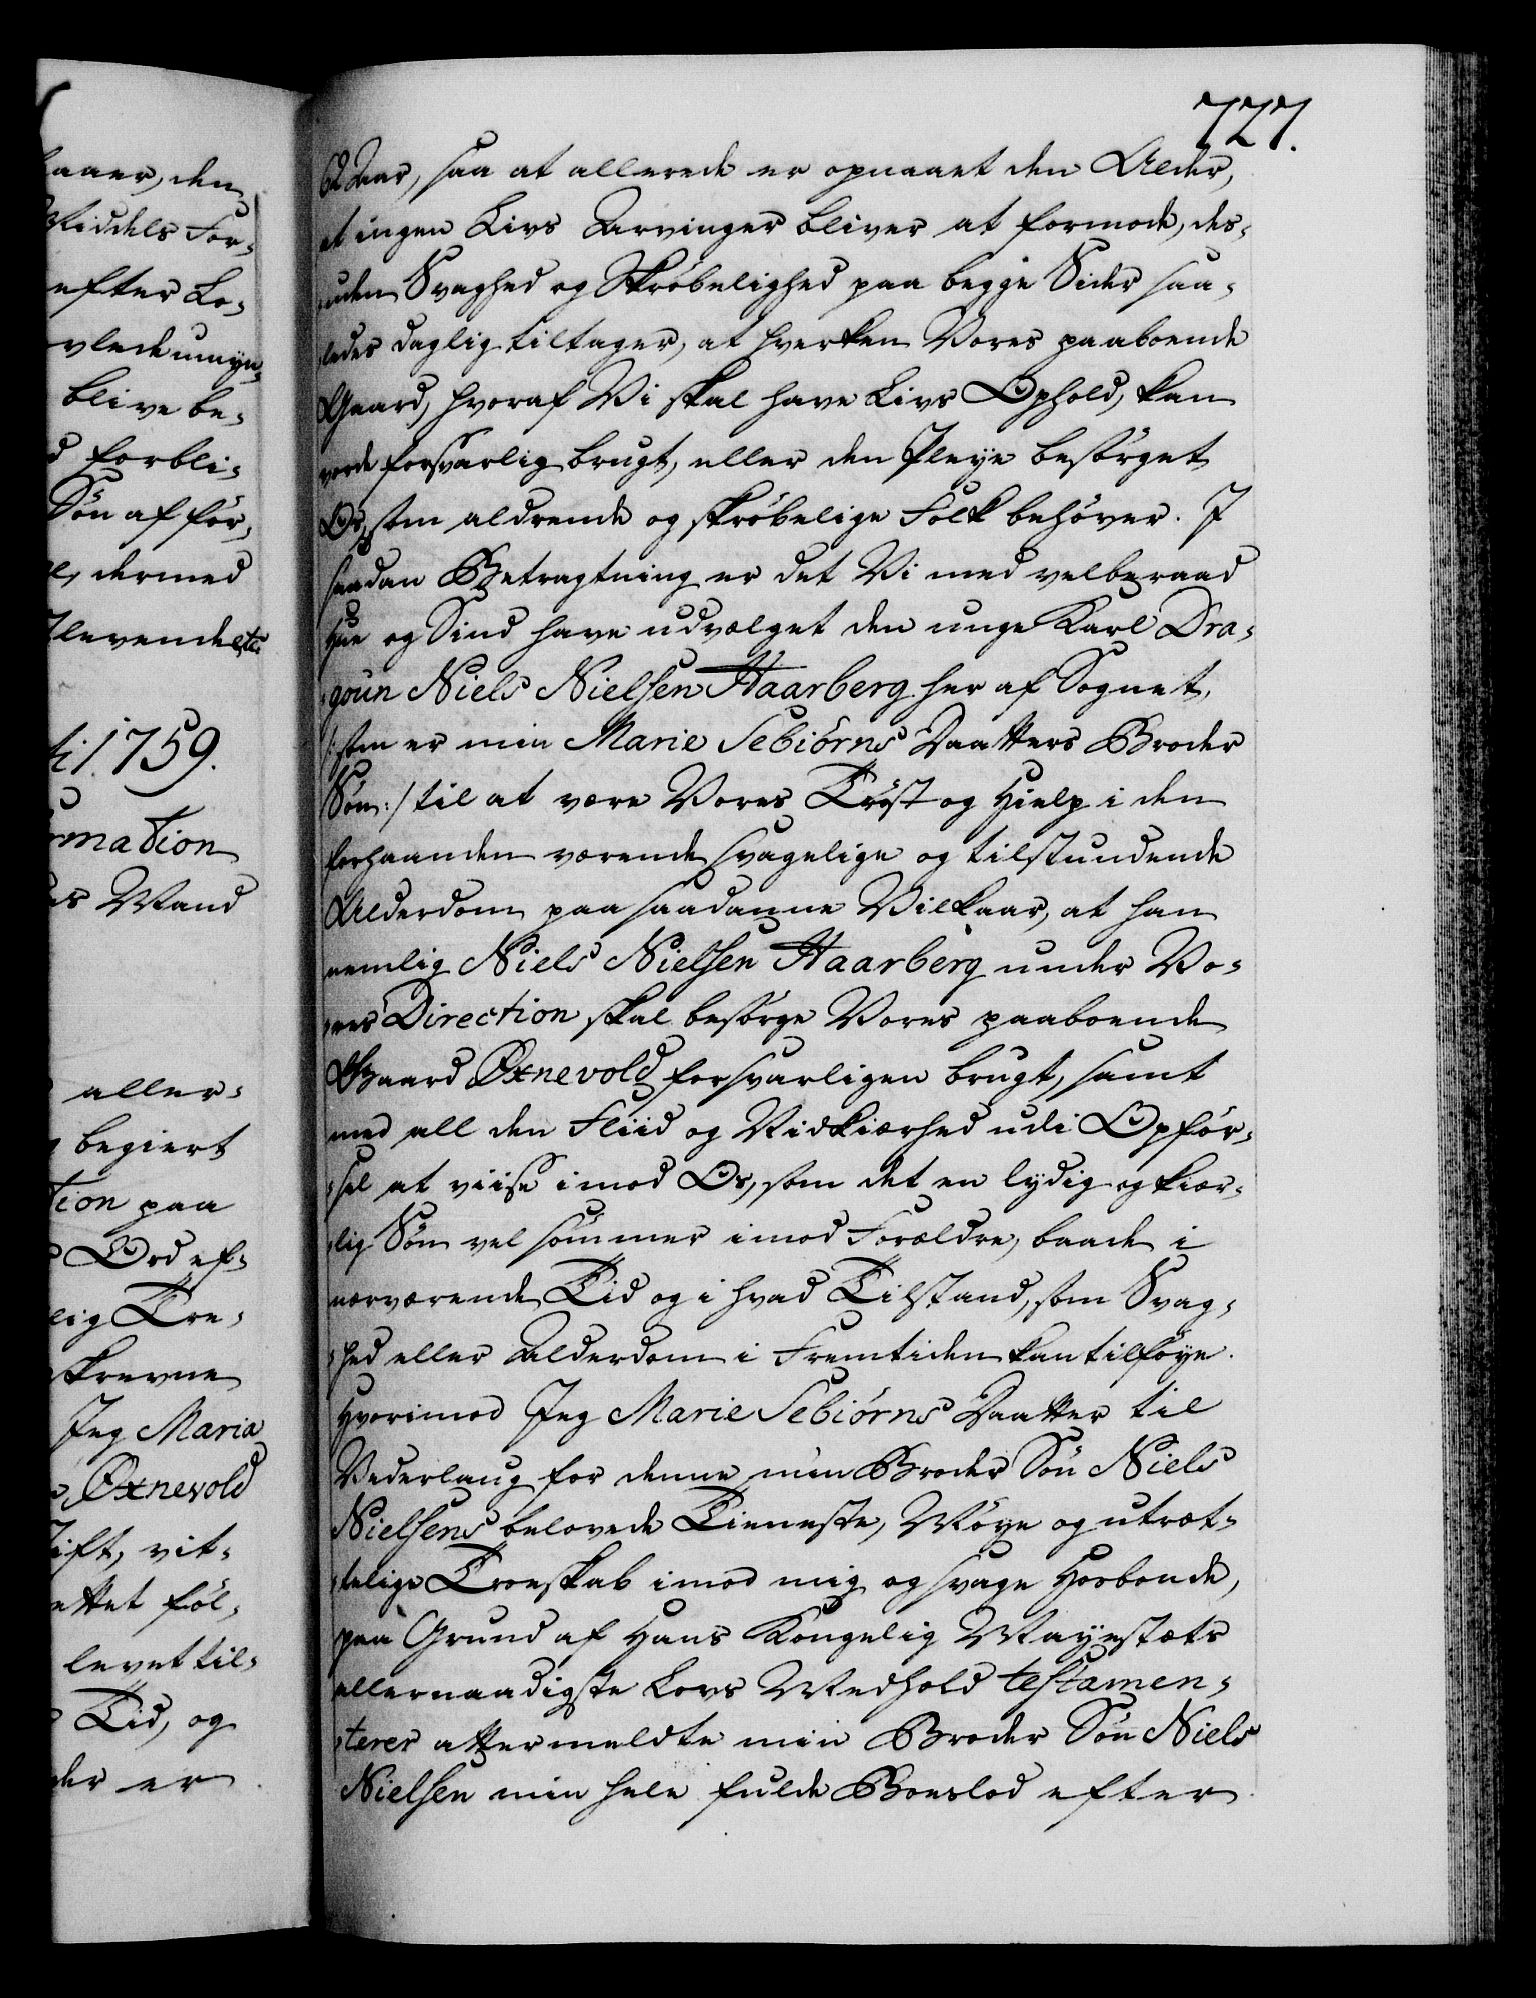 aaer, den
Middels For-
efter Lo-
blive be-
forbli-
Søn af før,
dermed
levende etc
1759.
rmation
Mand
aller-
begiert
tion paa
Ord ef-
lig Troe-
skrevne
Jeg Maria
Oxnevold
ift, vit-
ettet føl-
levet til-
Tid, og
der er
727.
62 Aar, saa at allerede er opnaaet den Alder,
at ingen Livs Arvinger bliver at formode, des-
uden Svaghed og Skrøbelighed paa begge Sider saa-
ledes daglig tiltager, at hverken Vores paaboende
Gaard, hvoraf Vi skal have Livs Ophold, kan
vorde forsvarlig brugt, eller den Pleye besørget
Os, som aldrende og skrøbelige Folk behøver. I
saadan Betragtning er det Vi med velberaad
Hue og Sind have udvælget den unge Karl Dra-
goun Niels Nielsen Haarberg her af Sognet,
/: som er min Marie Sebiørns Daatters Broder
Søn :/ til at være Vores Trøst og Hielp i den
forhaanden værende svagelige og tilstundende
Alderdom paa saadanne Vilkaar, at han
nemlig Niels Nielsen Haarberg under Vo-
res Direction skal besørge Vores paaboende
Gaard Oxnevold forsvarligen brugt, samt
med all den Fliid og Vidkierhed udi Opfør-
sel at viise imod Os, som det en lydig og kier-
lig Søn vel sømmer imod Forældre, baade i
nærværende Tid og i hvad Tilstand, som Svag-
hed eller Alderdom i Fremtiden kan tilføye.
Hvorimod Jeg Marie Sebiørns Daatter til
Vederlaug for denne min Broder Søn Niels
Nielsens belovede Tieneste, Møye og utræt-
telige Troeskab imod mig og svage Hosbonde,
paa Grund af Hans Kongelig Mayestæts
allernaadigste Lovs Medhold testamen-
terer attermeldte min Broder Søn Niels
Nielsen min hele fulde Boeslod efter